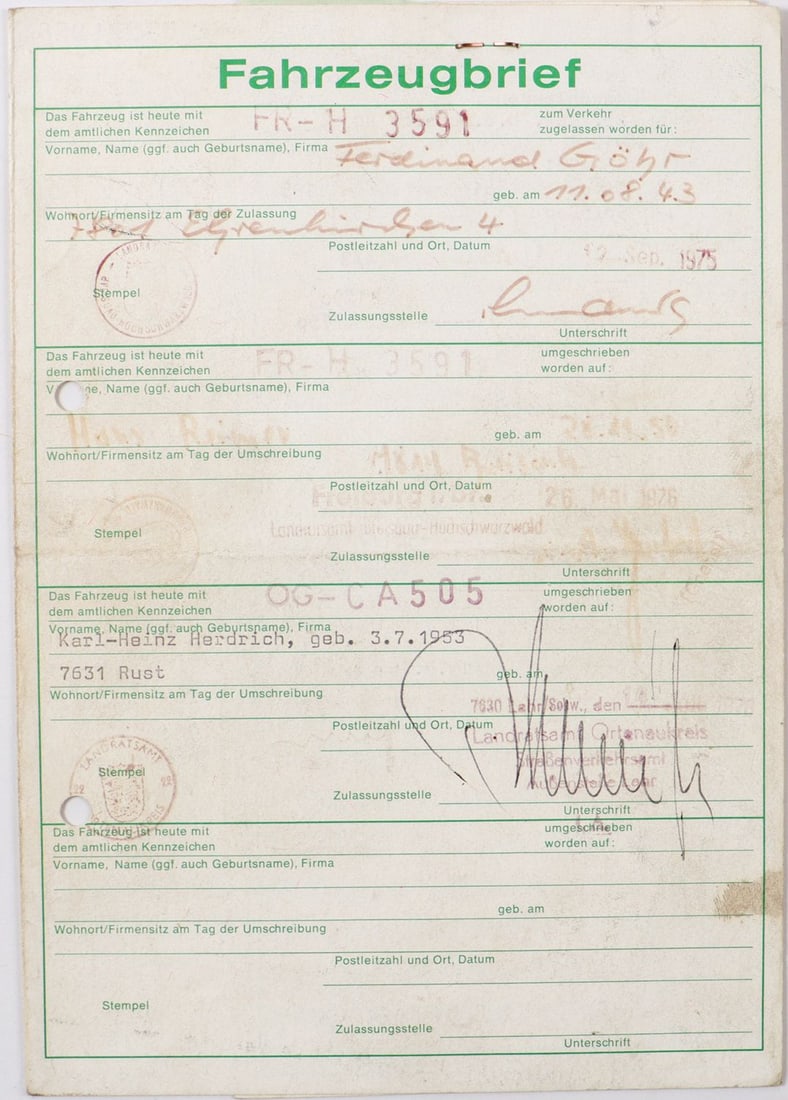 Fahrzeugbrief
Das Fahrzeug ist heute mit
dem amtlichen Kennzeichen
FR-H 3591
zum Verkehr
zugelassen worden für:
Vorname, Name (ggf. auch Geburtsname), Firma
Ferdinand Göhr
geb. am 11.08.43
Wohnort/Firmensitz am Tag der Zulassung
7801 Ehrenkirchen 4
Postleitzahl und Ort, Datum
Sep. 1975
Stempel
Zulassungsstelle
Unterschrift
Das Fahrzeug ist heute mit
dem amtlichen Kennzeichen
FR-H 3591
umgeschrieben
worden auf:
Vorname, Name (ggf. auch Geburtsname), Firma
geb. am
Wohnort/Firmensitz am Tag der Umschreibung
Postleitzahl und Ort, Datum
26. Mai 1976
Stempel
Landratsamt Breisgau-Hochschwarzwald
Zulassungsstelle
Unterschrift
Das Fahrzeug ist heute mit
dem amtlichen Kennzeichen
OG-CA505
umgeschrieben
worden auf:
Vorname, Name (ggf. auch Geburtsname), Firma
Karl-Heinz Herdrich, geb. 3.7.1953
7631 Rust
geb. am
Wohnort/Firmensitz am Tag der Umschreibung
7630 Lahr/Schw., den
Postleitzahl und Ort, Datum
Landratsamt Ortenaukreis
Straßenverkehrsamt
Außenstelle Lahr
LANDRATSAMT
Stempel
Zulassungsstelle
Unterschrift
Das Fahrzeug ist heute mit
dem amtlichen Kennzeichen
umgeschrieben
worden auf:
Vorname, Name (ggf. auch Geburtsname), Firma
geb. am
Wohnort/Firmensitz am Tag der Umschreibung
Postleitzahl und Ort, Datum
Stempel
Zulassungsstelle
Unterschrift